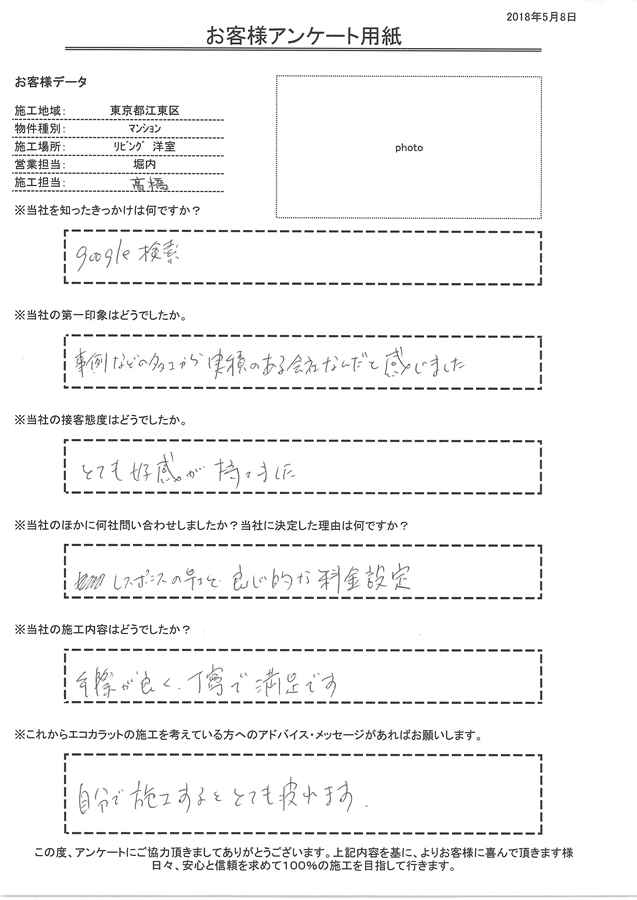 2018年5月8日
お客様アンケート用紙
お客様データ
施工地域： 東京都江東区
物件種別： ﾏﾝｼｮﾝ
施工場所： ﾘﾋﾞﾝｸﾞ 洋室
営業担当： 堀内
施工担当： 高橋
photo
※当社を知ったきっかけは何ですか？
google 検索
※当社の第一印象はどうでしたか。
事例などの多さから実積のある会社なんだと感じました
※当社の接客態度はどうでしたか。
とても好感が持てました
※当社のほかに何社問い合わせしましたか？当社に決定した理由は何ですか？
レスポンスの早さと 良心的な料金設定
※当社の施工内容はどうでしたか？
手際が良く、丁寧で満足です
※これからエコカラットの施工を考えている方へのアドバイス・メッセージがあればお願いします。
自分で施工するととても疲れます.
この度、アンケートにご協力頂きましてありがとうございます。上記内容を基に、よりお客様に喜んで頂きます様
日々、安心と信頼を求めて100%の施工を目指して行きます。